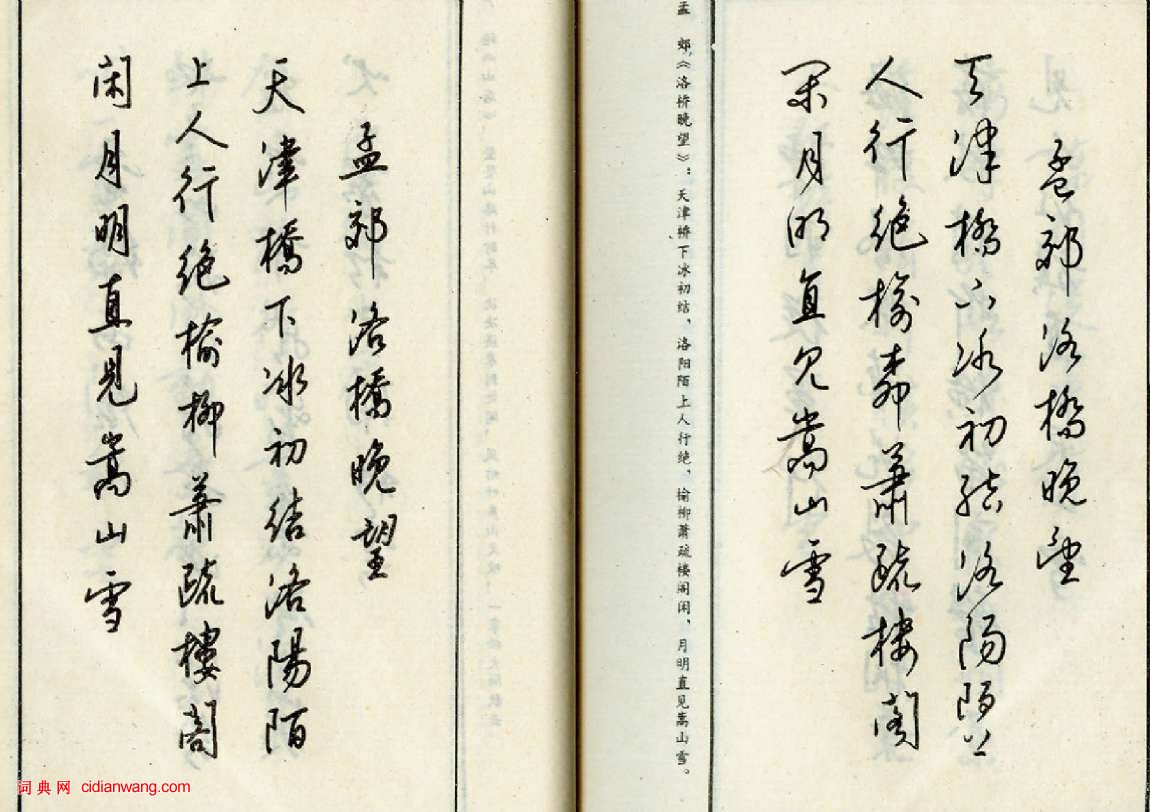 孟郊洛橋晚望
天津橋下冰初結洛陽陌上
人行絕榆柳蕭疏樓閣
閑月明直見嵩山雪
孟 郊《洛桥晚望》：天津桥下冰初结、洛阳陌上人行绝、榆柳萧疏楼阁闲、月明直见嵩山雪。
孟郊洛橋晚望
天津橋下冰初結洛陽陌
上人行絕榆柳蕭疏樓閣
閑月明直見嵩山雪
词典网 cidianwang.com